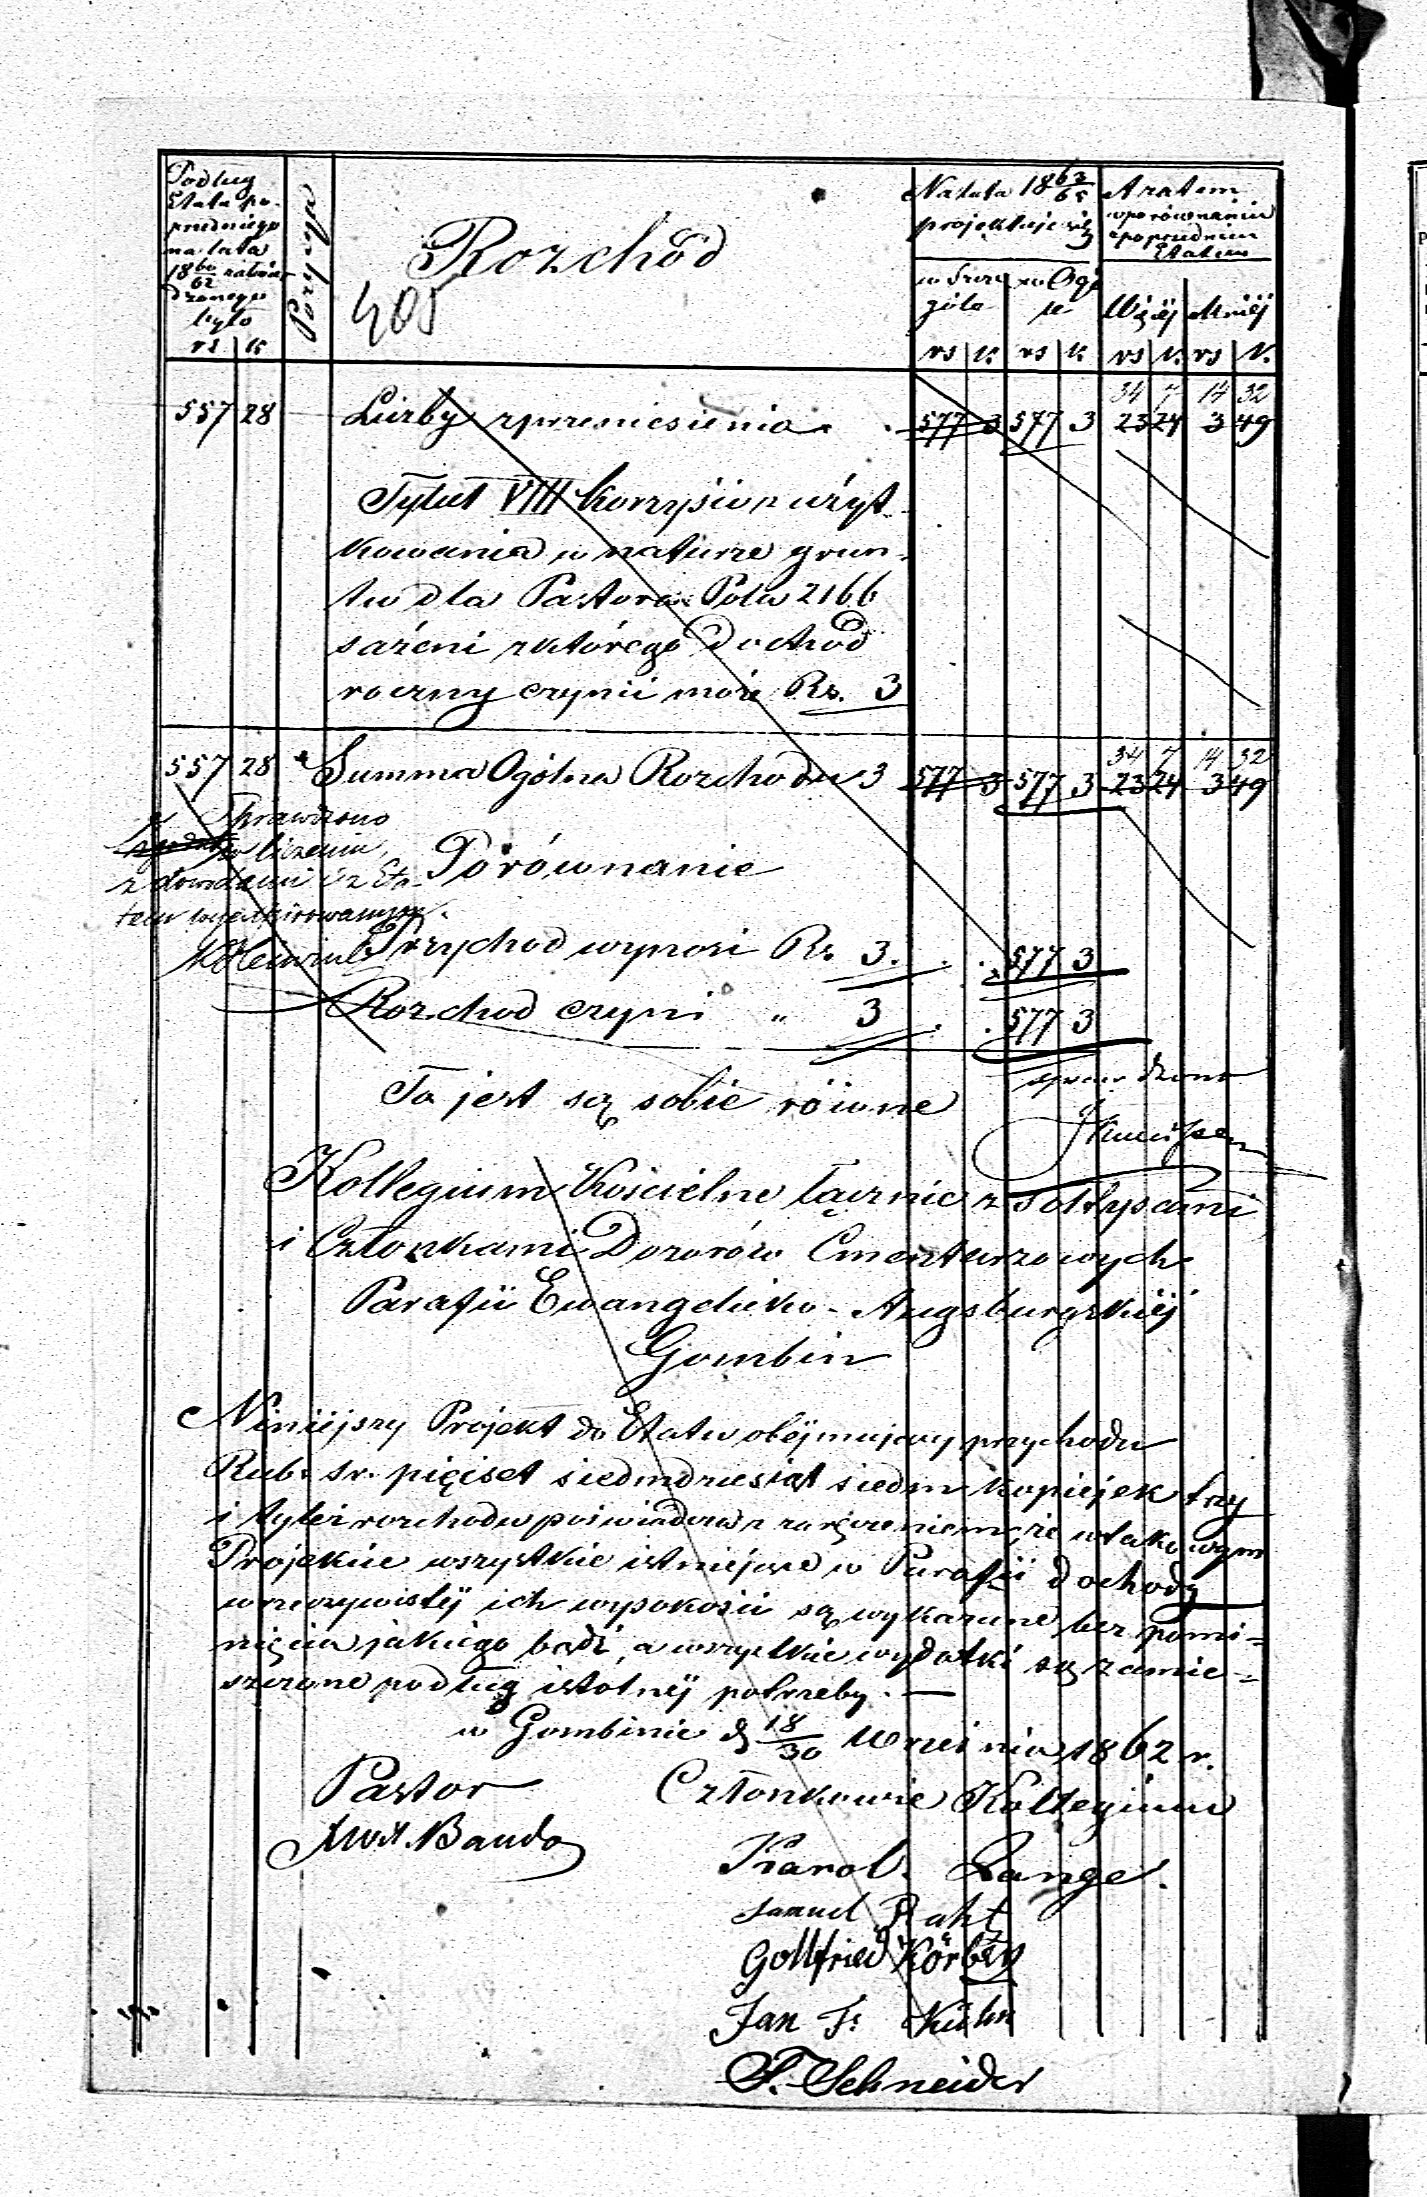 Podług
Etatu po-
przedniego
na lata
18 60/62 zatwier
dzonego
było
rs k
Rozchód
405
Na lata 18 63/65
projektuje się
w Szcze
góle
w Ogó
le
A zatem
w porównaniu
z poprzednim
Etatem
Więcéj Mniéj
rs k. rs k. rs k. rs k.
34 7 14 32
557 28 Liczby z przeniesienia . . 577 3 577 3 23 24 3 49
Tytuł VIII Korzyści z użyt-
kowania w naturze grun-
tu dla Pastora Pola 2166
sażeni z którego dochód
roczny czynić może Rs. 3
34 7 14 32
557 28 Summa Ogólna Rozchodu 3 577 3 577 3 23 24 3 49
Sprawdzono
w liczeniu,
z dowodami i z Eta-
tem
Porównanie
Przychod wynosi Rs. 3. . . 577 3
Rozchod czyni " 3 . . 577 3
sprawdzono
To jest są sobie równe
Kollegium Kościelne łącznie z Sołtysami
i Członkami Dozorów Cmentarzowych
Parafii Ewangelicko - Augsburgskiéj
Gombin
Niniéjszy Projekt do Etatu obéjmujący przychodu
Rub. sr. pięćset siedmdziesiąt siedm kopiejek trzy
i tyleż rozchodu poświadcza z zaręczeniem, że w takowym
Projekcie wszystkie istniejące w Parafii dochody
w rzeczywistéj ich wysokości są wykazane, bez pomi-
nięcia jakiego bądź, a wszystkie wydatki są zamie-
szczone podług istotnéj potrzeby. —
w Gombinie d 18/30 Września 1862 r.
Pastor Członkowie Kollegium
Banda
Karol. Lange.
Samuel Raht
Gottfried Körber
Jan F. Kühn
F. Schneider